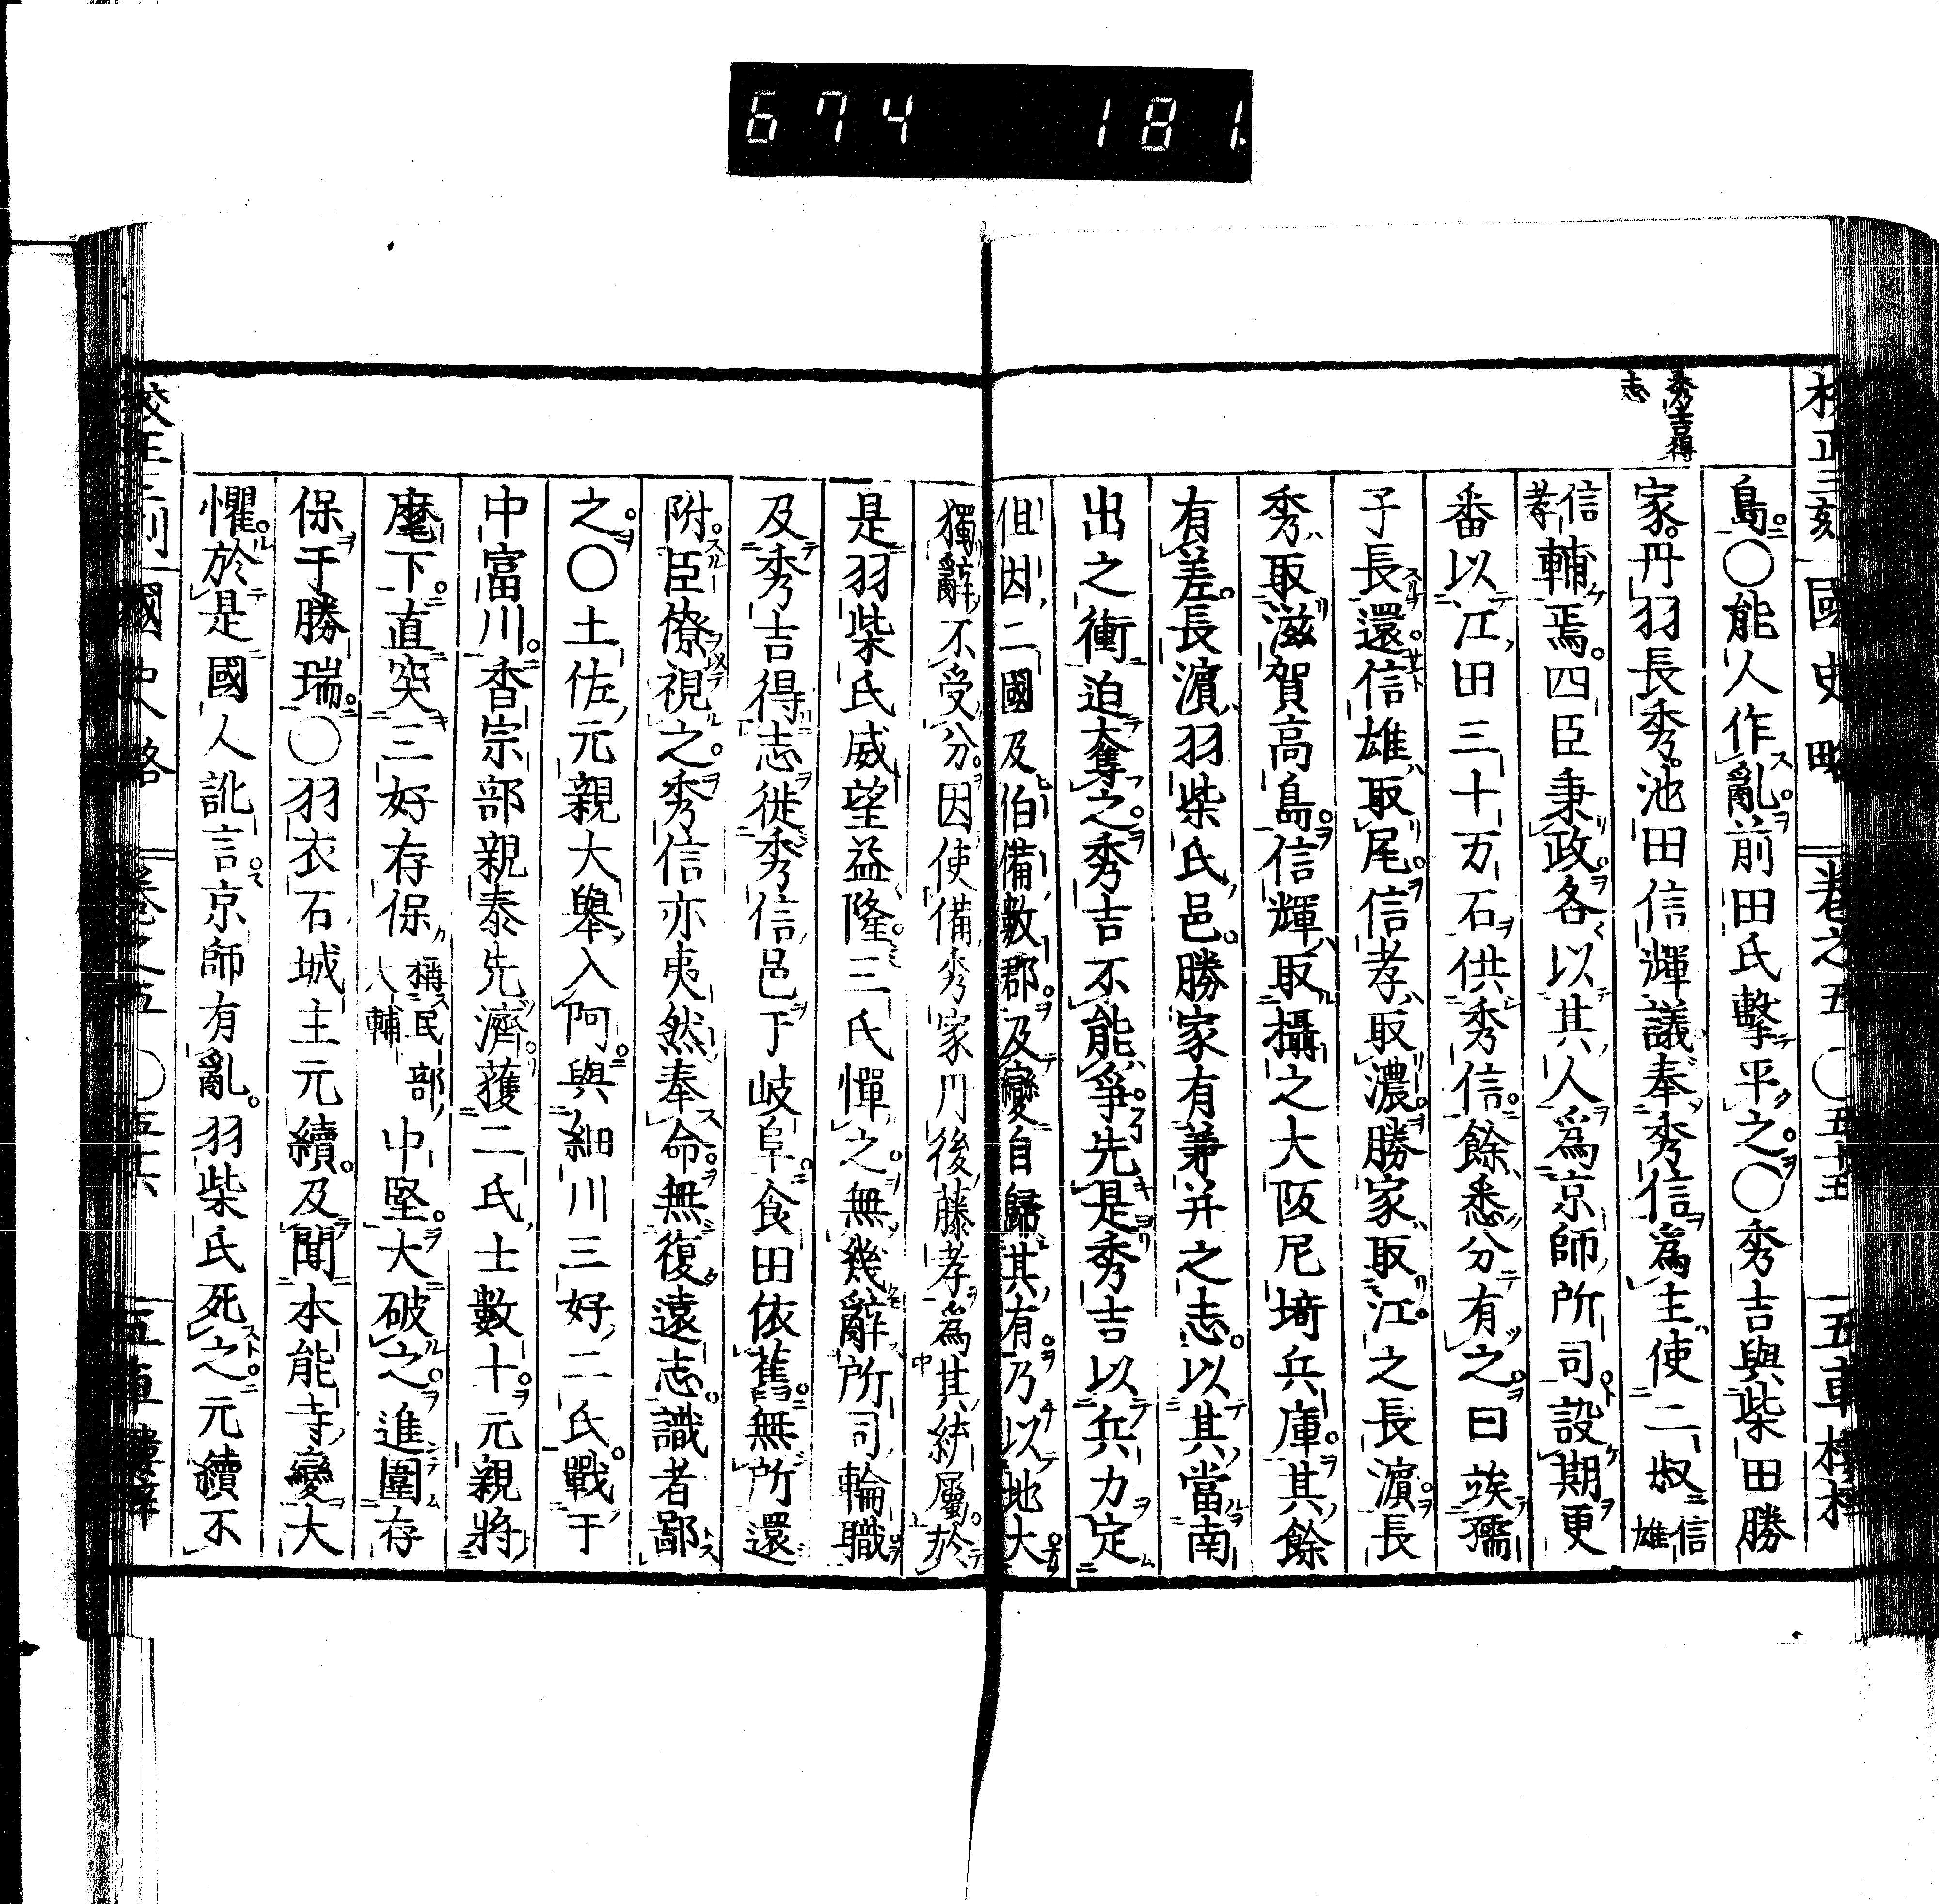 674 181
校正三刻 國史略 卷之五 〇五十五 五車樓梓
秀吉得
志
島〇能人作亂前田氏擊平之〇秀吉與柴田勝
家丹羽長秀池田信輝議奉秀信爲主使二叔信雄
信孝輔焉四臣秉政各以其人爲京師所司設期更
番以江田三十万石供秀信餘悉分有之曰竢孺
子長還信雄取尾信孝取濃勝家取江之長濵長
秀取滋賀高島信輝取攝之大阪尼埼兵庫其餘
有差長濵羽柴氏邑勝家有兼并之志以其當南
出之衝迫奪之秀吉不能爭先是秀吉以兵力定
但因二國及伯備數郡及變自歸其有乃以地大
獨辭不受分因使備秀家丹後藤孝爲其統屬於
是羽柴氏威望益隆三氏憚之無幾辭所司輪職
及秀吉得志徙秀信邑于岐阜食田依舊無所還
附臣僚視之秀信亦夷然奉命無復遠志識者鄙
之〇土佐元親大舉入阿與細川三好二氏戰于
中富川香宗部親泰先濟獲二氏士數十元親將
麾下直突三好存保稱民部大輔中堅大破之進圍存
保于勝瑞〇羽衣石城主元續及聞本能寺變大
懼於是國人訛言京師有亂羽柴氏死之元續不
校正三刻 國史略 卷之五 〇五十六 五車樓梓